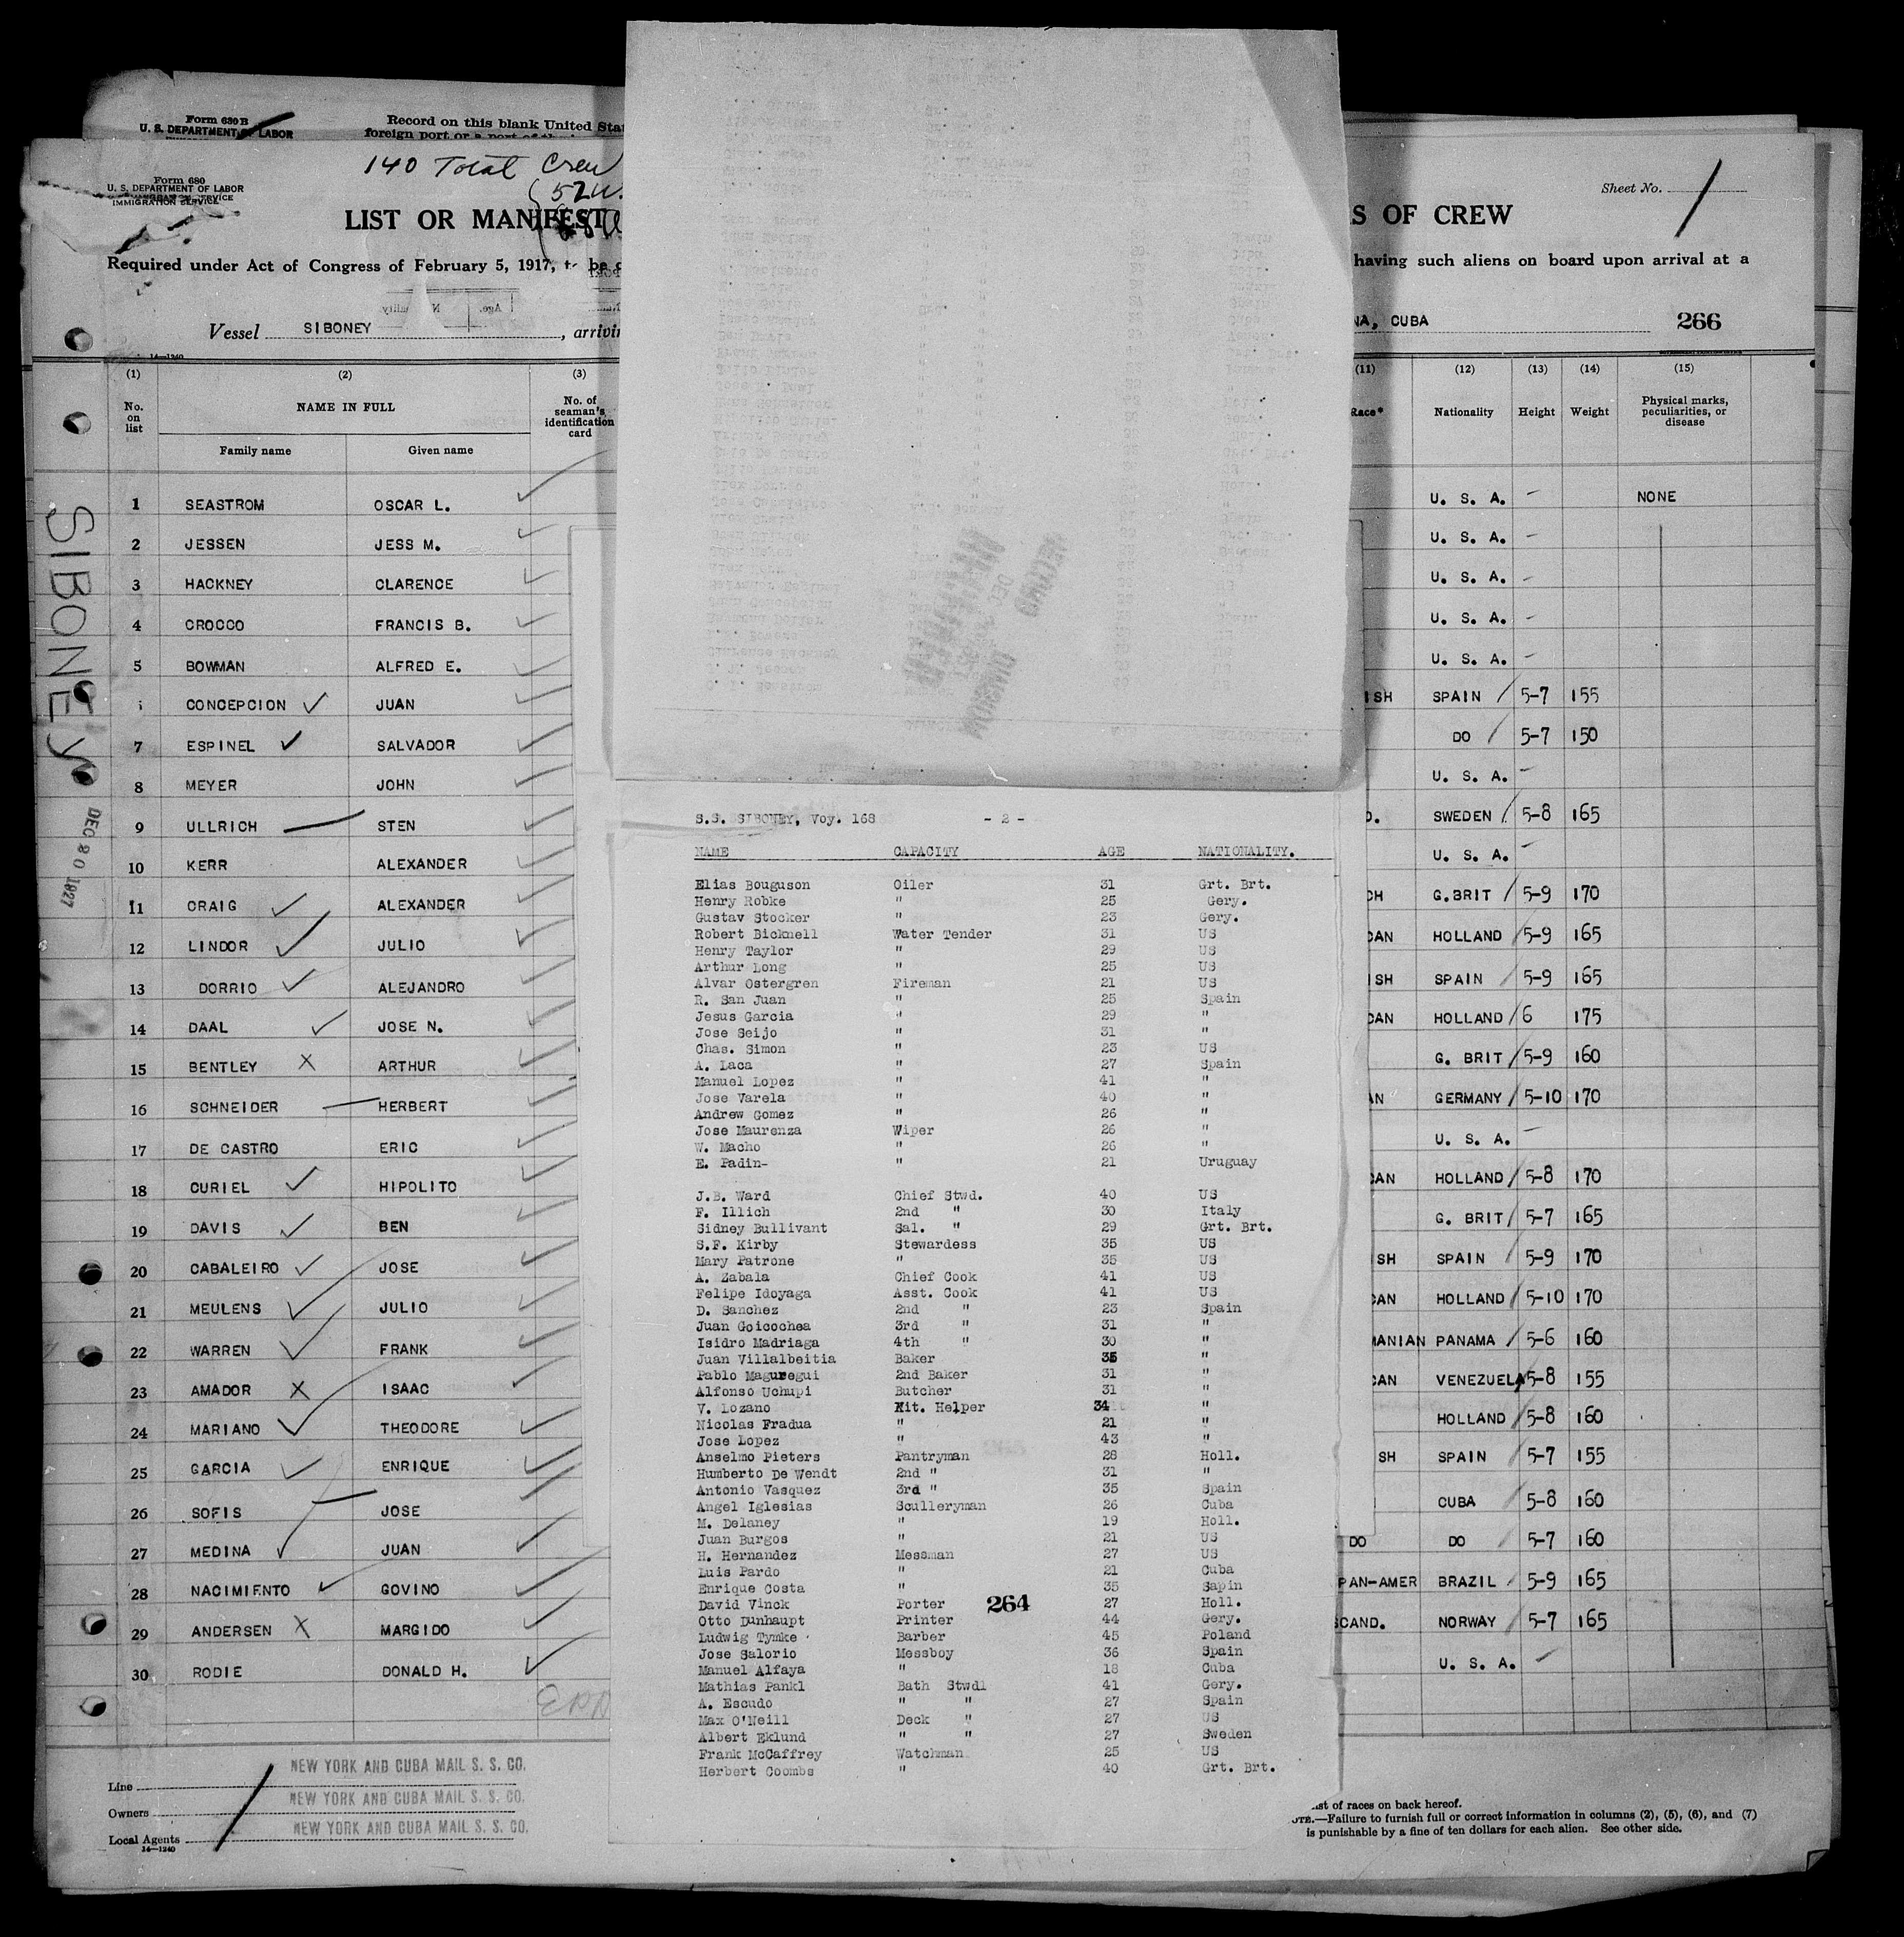 Form 630 B
U. S. DEPARTMENT OF LABOR
Record on this blank United Sta
foreign port or a port of
140 Total Crew
52
Form 680
U. S. DEPARTMENT OF LABOR
IMMIGRATION SERVICE
Sheet No. 1
LIST OR MANIFEST
S OF CREW
Required under Act of Congress of February 5, 1917, to be
having such aliens on board upon arrival at a
Vessel SIBONEY, arrivin
NA, CUBA
266
14—1240
(1) (2) (3) (11) (12) (13) (14) (15)
No. on list
NAME IN FULL
Family name Given name
No. of seaman's identification card
Race*
Nationality
Height
Weight
Physical marks, peculiarities, or disease
SIBONEY
DEC 30 1927
1 SEASTROM OSCAR L. U. S. A. – NONE
2 JESSEN JESS M. U. S. A. –
3 HACKNEY CLARENCE U. S. A. –
4 CROCCO FRANCIS B. U. S. A. –
5 BOWMAN ALFRED E. U. S. A. –
CONCEPCION JUAN ISH SPAIN 5-7 155
7 ESPINEL SALVADOR DO 5-7 150
8 MEYER JOHN U. S. A. –
9 ULLRICH STEN D. SWEDEN 5-8 165
10 KERR ALEXANDER U. S. A. –
11 CRAIG ALEXANDER CH G.BRIT 5-9 170
12 LINDOR JULIO CAN HOLLAND 5-9 165
13 DORRIO ALEJANDRO ISH SPAIN 5-9 165
14 DAAL JOSE N. CAN HOLLAND 6 175
15 BENTLEY X ARTHUR G. BRIT 5-9 160
16 SCHNEIDER HERBERT AN GERMANY 5-10 170
17 DE CASTRO ERIC U. S. A. –
18 CURIEL HIPOLITO CAN HOLLAND 5-8 170
19 DAVIS BEN G. BRIT 5-7 165
20 CABALEIRO JOSE SH SPAIN 5-9 170
21 MEULENS JULIO CAN HOLLAND 5-10 170
22 WARREN FRANK MANIAN PANAMA 5-6 160
23 AMADOR X ISAAC CAN VENEZUELA 5-8 155
24 MARIANO THEODORE HOLLAND 5-8 160
25 GARCIA ENRIQUE SH SPAIN 5-7 155
26 SOFIS JOSE CUBA 5-8 160
27 MEDINA JUAN DO DO 5-7 160
28 NACIMIENTO GOVINO PAN-AMER BRAZIL 5-9 165
29 ANDERSEN X MARGIDO SCAND. NORWAY 5-7 165
30 RODIE DONALD H. U. S. A. –
Line NEW YORK AND CUBA MAIL S. S. CO.
Owners NEW YORK AND CUBA MAIL S. S. CO.
Local Agents NEW YORK AND CUBA MAIL S. S. CO.
14—1240
ist of races on back hereof.
OTE.—Failure to furnish full or correct information in columns (2), (5), (6), and (7)
is punishable by a fine of ten dollars for each alien. See other side.
S.S. SIBONEY, Voy. 168 - 2 -
NAME CAPACITY AGE NATIONALITY.
Elias Bouguson Oiler 31 Grt. Brt.
Henry Robke " 25 Gery.
Gustav Stocker " 23 Gery.
Robert Bicknell Water Tender 31 US
Henry Taylor " 29 US
Arthur Long " 25 US
Alvar Ostergren Fireman 21 US
R. San Juan " 25 Spain
Jesus Garcia " 29 "
Jose Seijo " 31 "
Chas. Simon " 23 US
A. Laca " 27 Spain
Manuel Lopez " 41 "
Jose Varela " 40 "
Andrew Gomez " 26 "
Jose Maurenza Wiper 26 "
W. Macho " 26 "
E. Padin- " 21 Uruguay
J.B. Ward Chief Stwd. 40 US
F. Illich 2nd " 30 Italy
Sidney Bullivant Sal. " 29 Grt. Brt.
S.F. Kirby Stewardess 35 US
Mary Patrone " 35 US
A. Zabala Chief Cook 41 US
Felipe Idoyaga Asst. Cook 41 US
D. Sanchez 2nd " 23 Spain
Juan Goicochea 3rd " 31 "
Isidro Madriaga 4th " 30 "
Juan Villalbeitia Baker 35 "
Pablo Maguregui 2nd Baker 31 "
Alfonso Uchupi Butcher 31 "
V. Lozano Kit. Helper 34 "
Nicolas Fradua " 21 "
Jose Lopez " 43 "
Anselmo Pieters Pantryman 28 Holl.
Humberto De Wendt 2nd " 31 "
Antonio Vasquez 3rd " 35 Spain
Angel Iglesias Sculleryman 26 Cuba
M. Delaney " 19 Holl.
Juan Burgos " 21 US
H. Hernandez Messman 27 US
Luis Pardo " 21 Cuba
Enrique Costa " 35 Sapin
David Vinck Porter 264 27 Holl.
Otto Dunhaupt Printer 44 Gery.
Ludwig Tymke Barber 45 Poland
Jose Salorio Messboy 36 Spain
Manuel Alfaya " 18 Cuba
Mathias Pankl Bath Stwd. 41 Gery.
A. Escudo " " 27 Spain
Max O'Neill Deck " 27 US
Albert Eklund " " 27 Sweden
Frank McCaffrey Watchman 25 US
Herbert Coombs " 40 Grt. Brt.